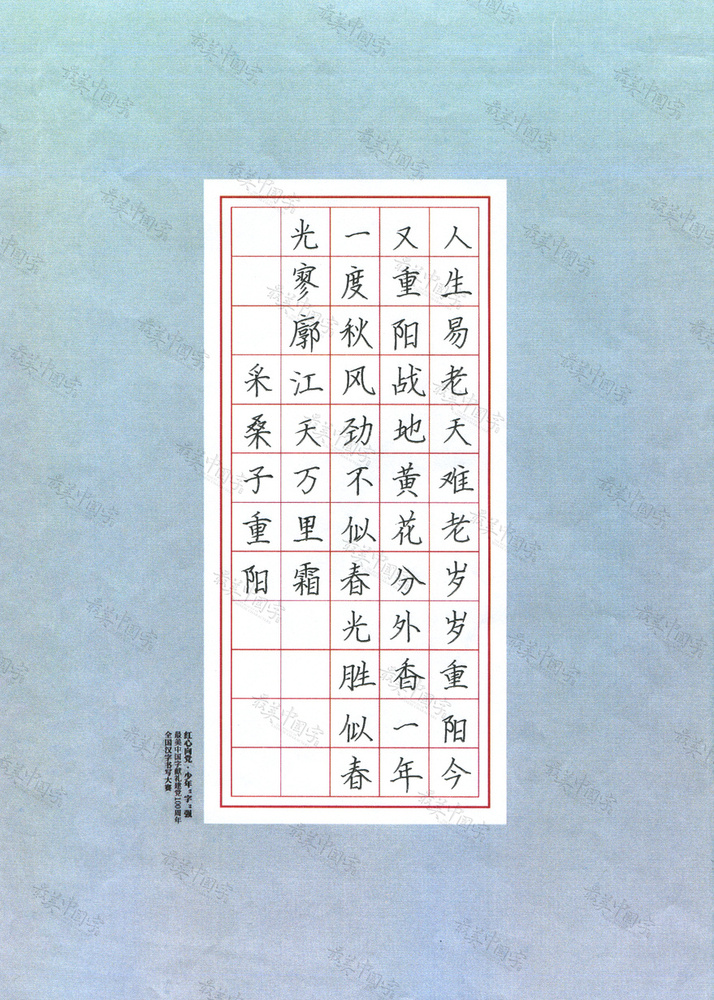 人生易老天难老岁岁重阳今
又重阳战地黄花分外香一年
一度秋风劲不似春光胜似春
光寥廓江天万里霜
采桑子重阳
红心向党·少年“字”强
最美中国字献礼建党100周年
全国汉字书写大赛
最美中国字